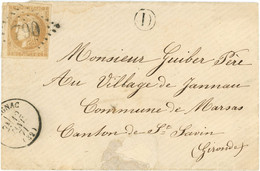 700
D
Monsieur Guiber Père
Au Village de Jannau
Commune de Marsas
Canton de St. Savin
(Gironde)